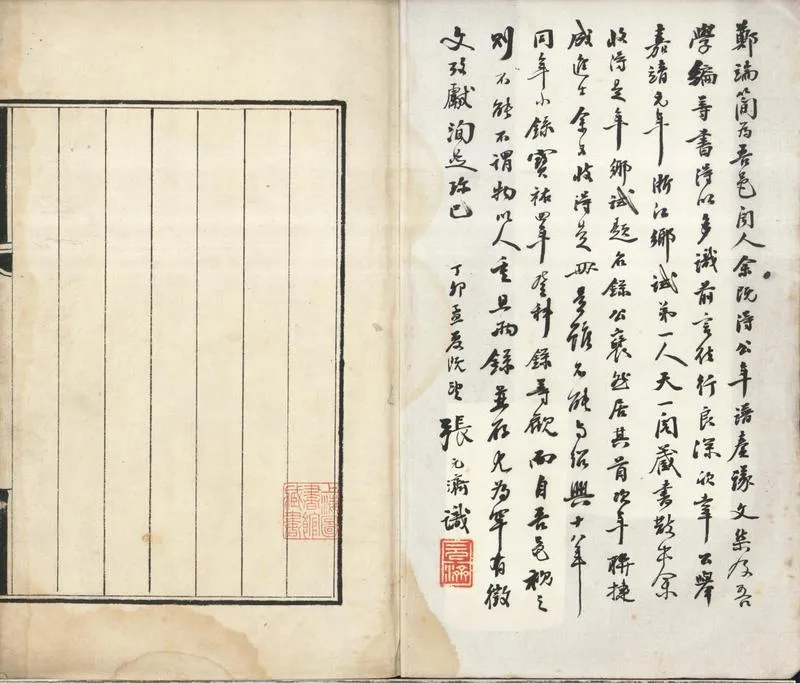 鄭端簡為吾邑聞人余既得公年譜奏議文集及吾
學編等書得以多識前言往行良深欣幸公舉
嘉靖元年浙江鄉試第一人天一閣藏書散出余
收得是年鄉試題名錄公裒然居其首次年聯捷
成進士余又收得是冊雖不能與紹興十八年
同年小錄寶祐四年登科錄等觀而自吾邑視之
則不能不謂物以人重且兩錄並存尤為罕有徵
文攷獻洵足珍已
丁卯孟夏既望 張元濟識
元濟
書館
藏書